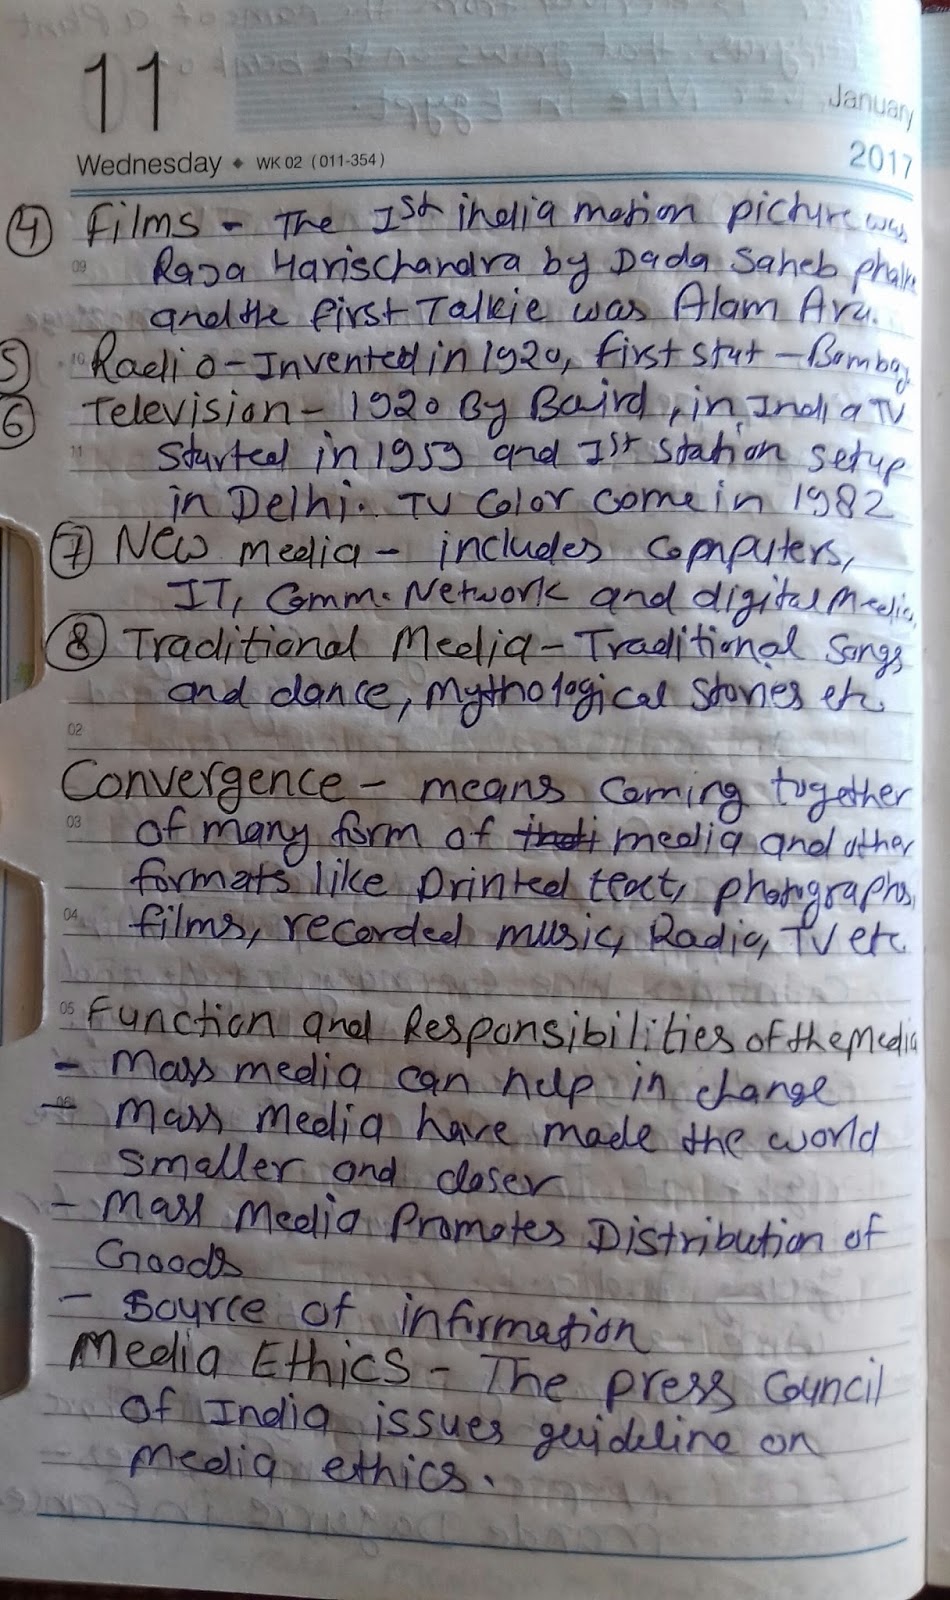 11
January
Wednesday • WK 02 (011-354)
2017
4 Films - The Ist india motion picture was
09 Raja Harischandra by Dada Saheb phalke
and the first Talkie was Alam Ara.
5 10 Radio - Invented in 1920, first stat - Bombay
6 Television - 1920 By Baird, in India TV
11 Started in 1959 and Ist station setup
in Delhi. TV Color come in 1982
7 New media - includes computers,
IT, Comm. Network and digital Media,
8 Traditional Media - Traditional Songs
and dance, Mythological Stories etc.
02
Convergence - means coming together
03 of many form of media and other
formats like Printed text, photographs,
04 films, recorded music, Radio, TV etc
05 Function and Responsibilities of the Media
- Mass media can help in change
06 - Mass Media have made the world
smaller and closer
- Mass Media Promotes Distribution of
Goods
- Source of infirmation
Media Ethics - The press Council
of India issues guideline on
Media ethics.